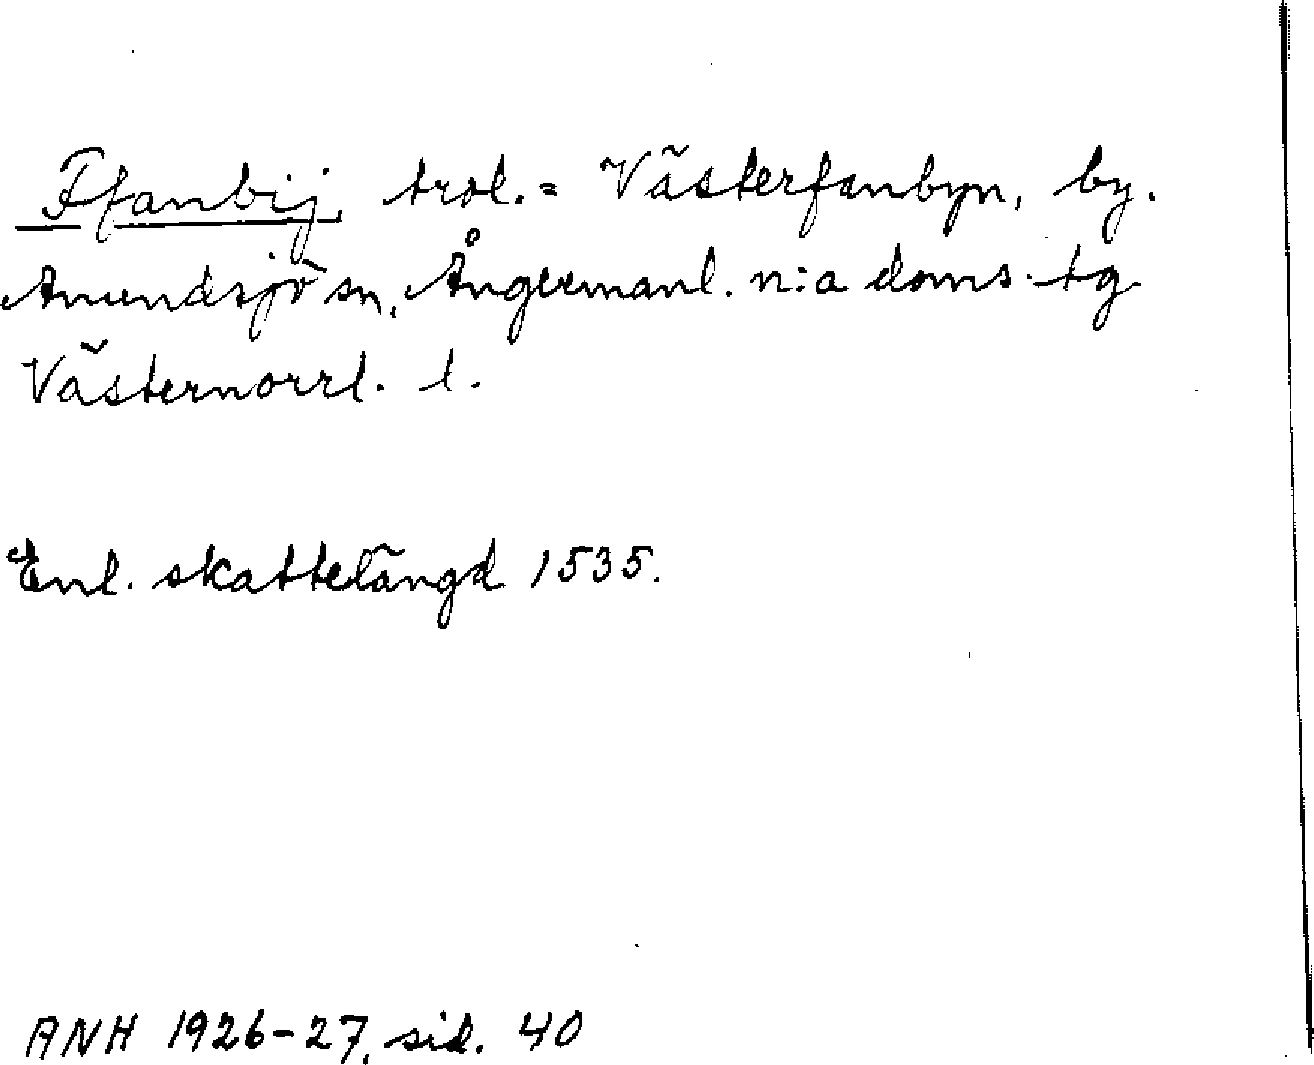 Ffanbij, trol. = Västerfanbyn, by.
Anundsjö sn, Ångermanl. n:a doms. tg
Västernorrl. l.
Enl. skattelängd 1535.
ANH 1926-27, sid. 40